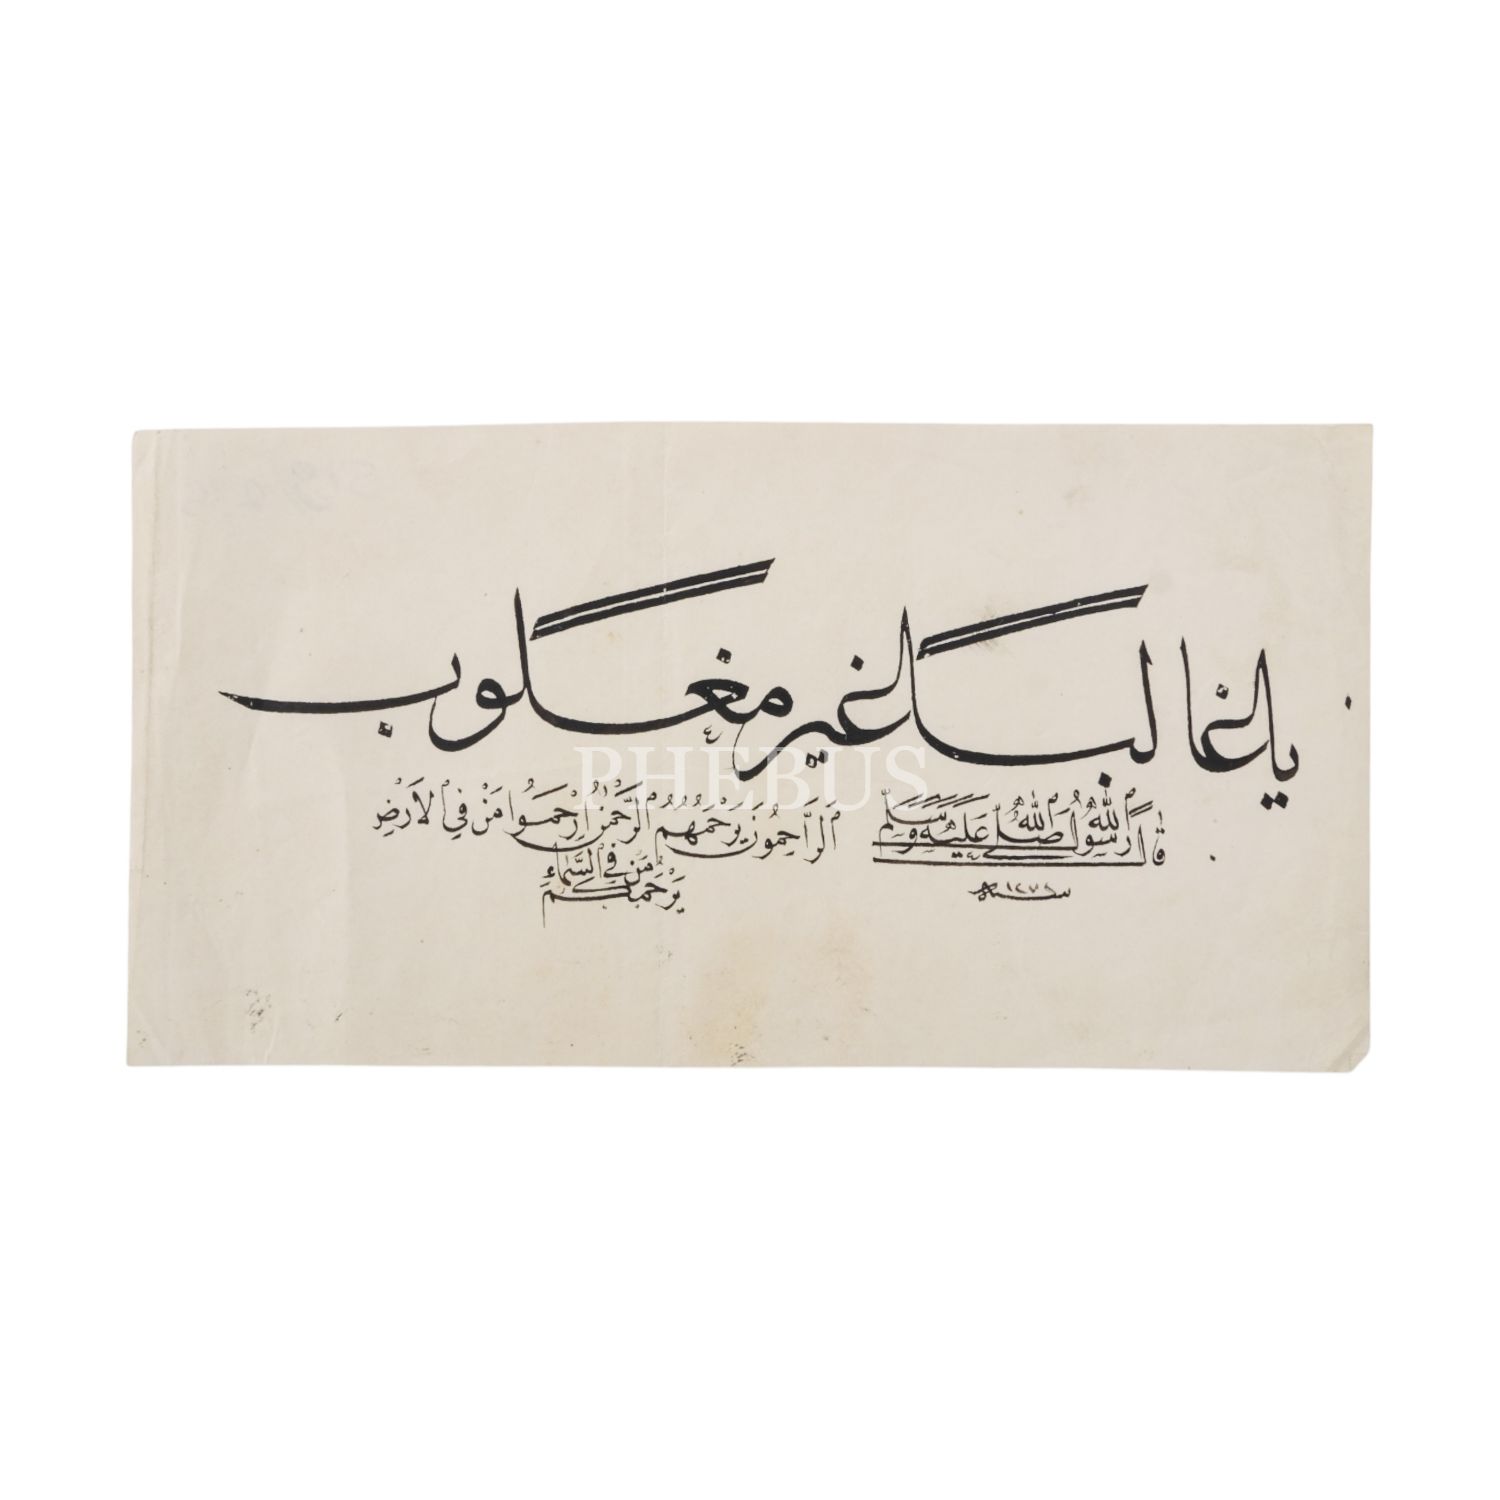 يا غالبا غير مغلوب
PHEBUS
قال رسول الله صلى الله عليه وسلم الرَّاحِمُونَ يَرْحَمُهُمُ الرَّحْمٰنُ اِرْحَمُوا مَنْ فِي الْاَرْضِ
يَرْحَمُكُمْ مَنْ فِي السَّمَاءِ
سنة ١٢٧٨